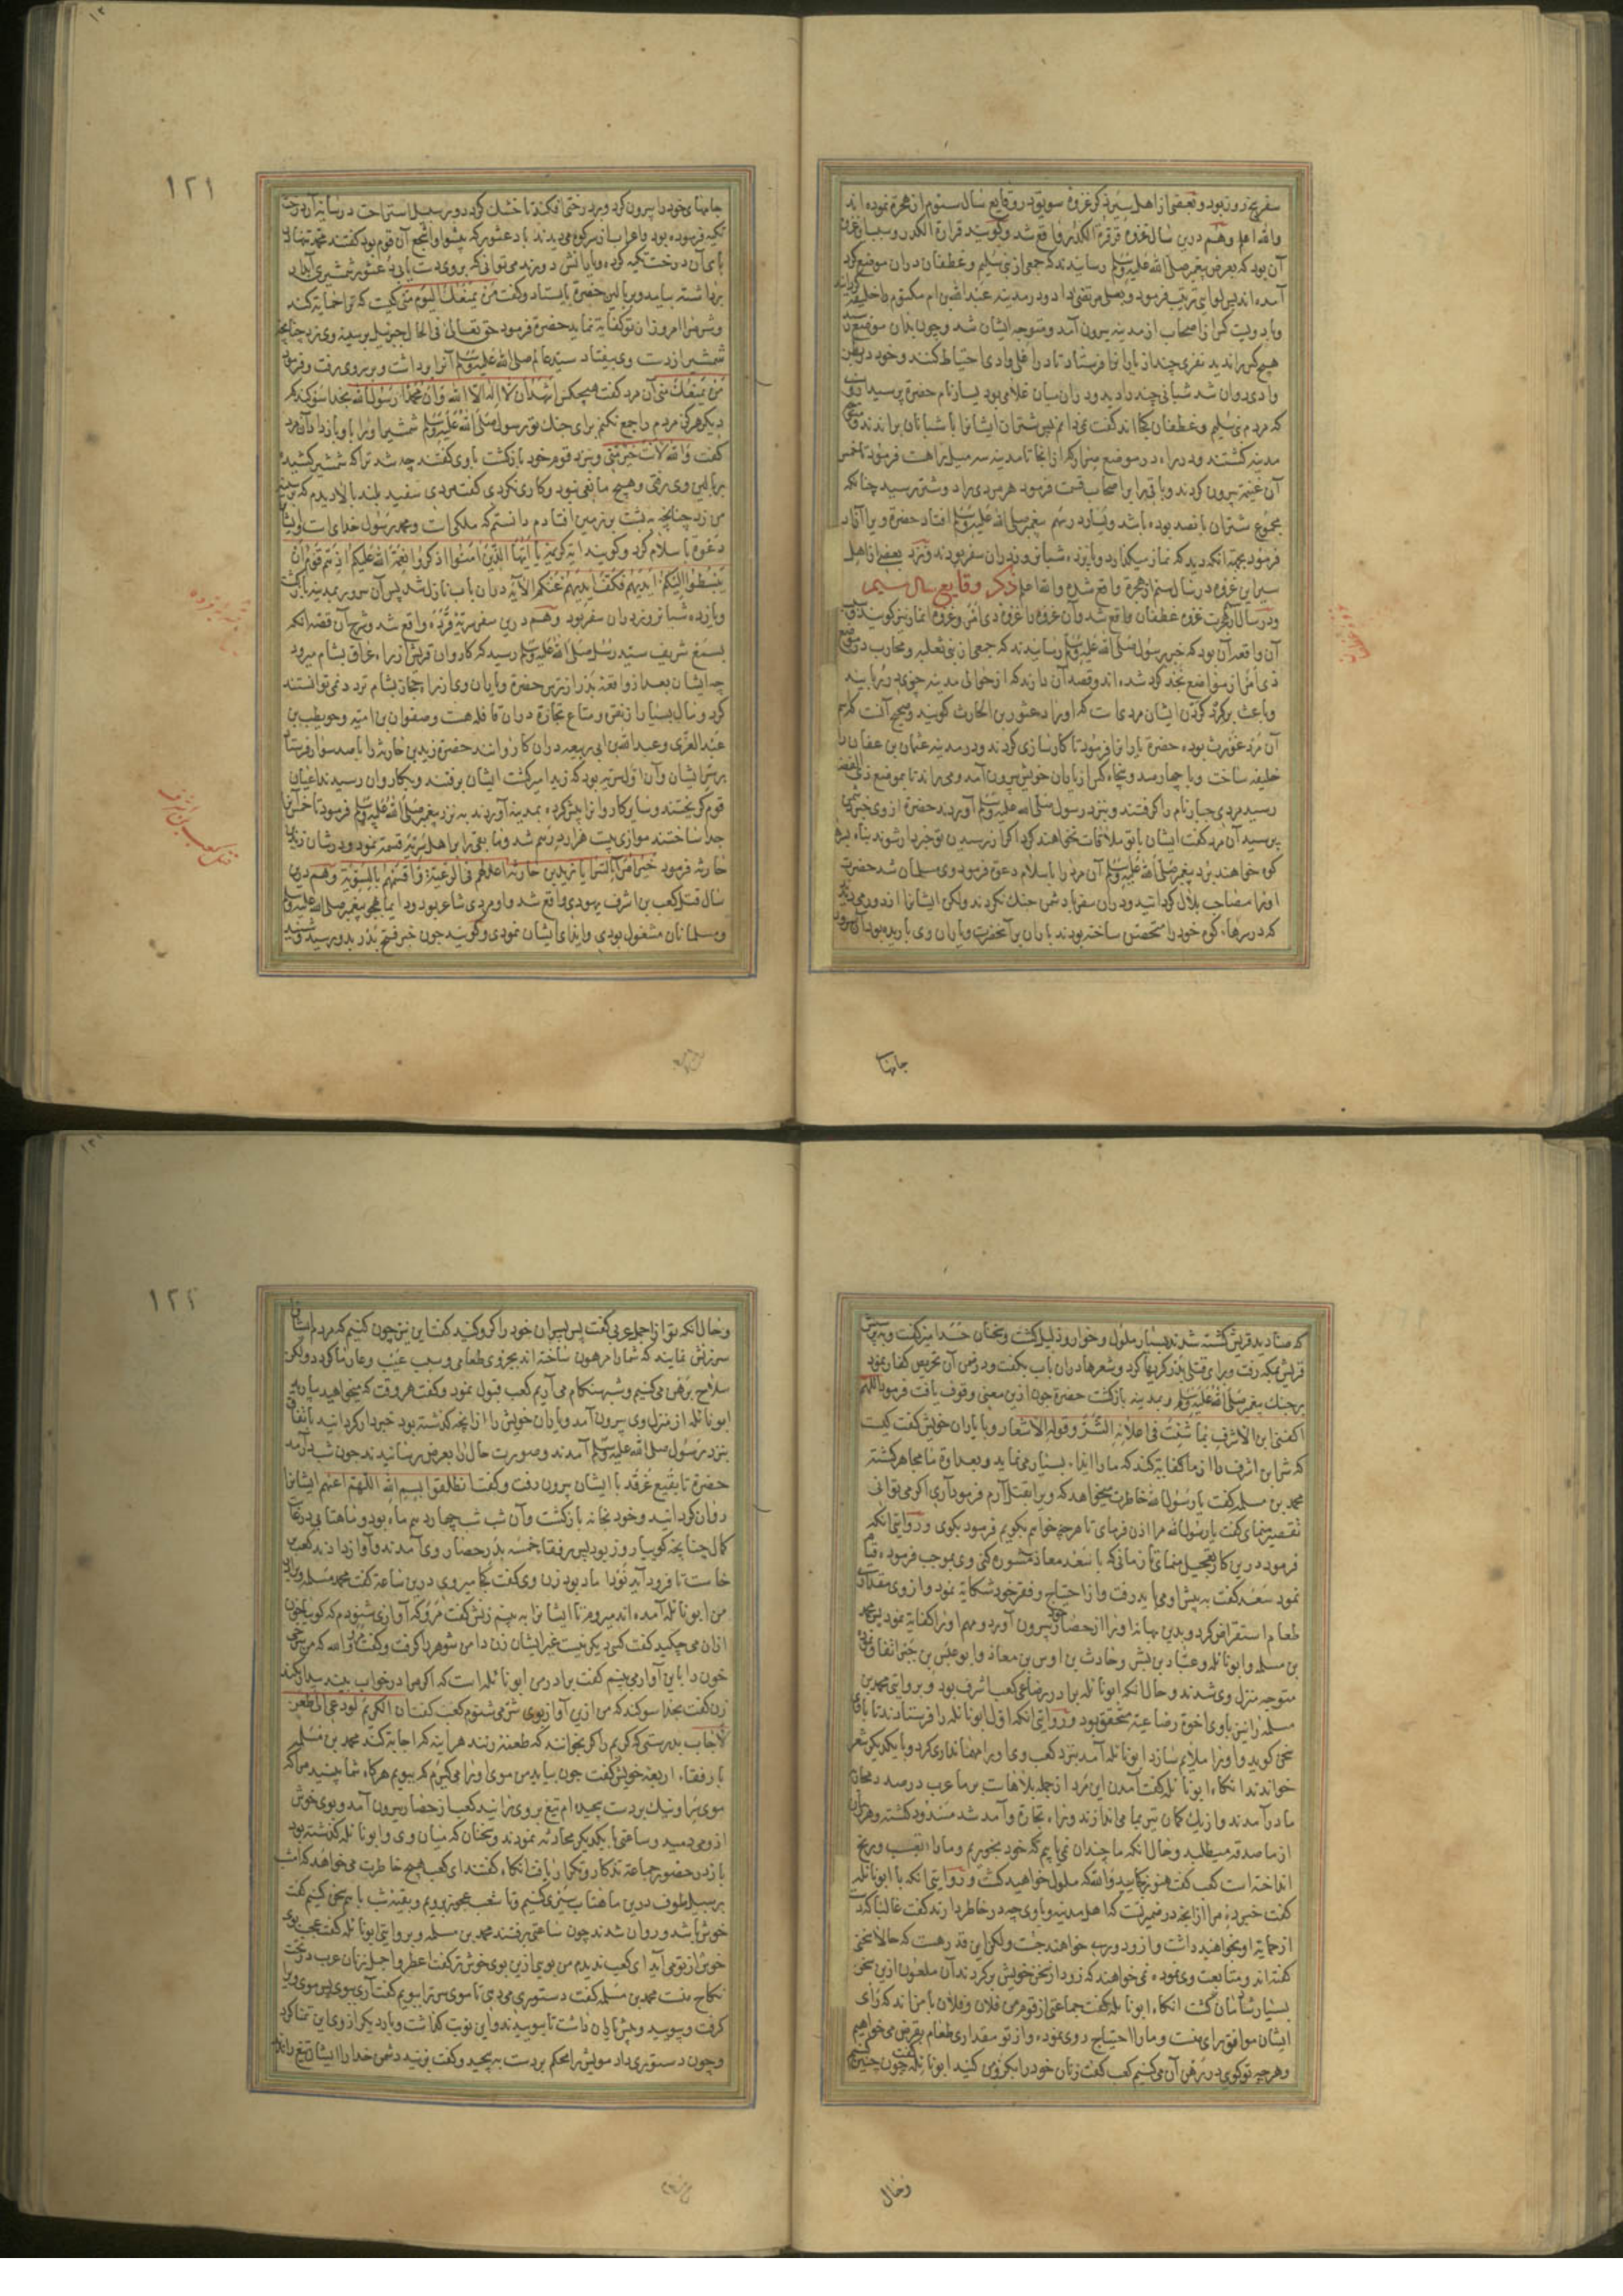 سفر پنج روز بود و بعضی از اهل سیر ذکر غزوه سویق در وقایع سال سیوم از هجرة نموده اند
والله اعلم وهم درین سال غزوه قرقرة الکدر واقع شد وکویند قرارة الکدر وسبب
آن بود که بعرض پیغمبر صلی الله علیه وسلم رسانیدند که جمعی از بنی سلیم و غطفان دران موضع کرد
آمده اند پس لوایی ترتیب فرمود و بعلی مرتضی داد ودر مدینه عبدالله بن ام مکتوم را خلیفه
وبا دویست کس از اصحاب از مدینه بیرون آمد و متوجه ایشان شد و چون بدان موضع
هیچ کس را ندید نفری چند از یارانرا فرستاد تا در اعلی وادی احتیاط کنند و خود در بطن
وادی روان شد شبانی چند را دید و دران میان غلامی بود یسار نام حضرة پرسید از وی
که مردم بنی سلیم و غطفان کجا اند کفت نمی دانم پس شتران ایشانرا با شبانان براندند و
مدینه کشتند ودر راه در موضع صرار که از انجا تا مدینه سه میل راهست فرمود تا خمس
آن غنیمة بیرون کردند و باقی را بر اصحاب قسمت فرمود هر مردی را دو شتر رسید چنانکه
مجموع شتران پانصد بوده باشد و یسار در سهم پیغمبر صلی الله علیه وسلم افتاد حضرة ویرا آزاد
فرمود بجهة انکه دید که نماز میکذارد و پانزده شبانروز دران سفر بودند ونزد بعضی از اهل
سیر این غزوه در سال سیم از هجرة واقع شده والله اعلم ذکر وقایع سال سیم
ودر سال از هجرت غزوه غطفان واقع شد وآن غزوه را غزوه ذی امر و غزوه انمار نیز کویند
آن واقعه آن بود که خبر برسول صلی الله علیه وسلم رسانیدند که جمعی از بنی ثعلبه و محارب در موضع
ذی امر از مواضع نجد کرد شده اند و قصد آن دارند که از حوالی مدینه چیزی بربایند
وباعث بر کرد کردن ایشان مردی است که او را دعثور بن الحارث کویند
خلیفه ساخت و با چهارصد و پنجاه کس از یاران خویش بیرون آمد و می راند تا بموضع ذی القصه
رسید مردی جبار نام را کرفتند و بنزد رسول صلی الله علیه وسلم آوردند حضرة از وی خبر
پرسید آن مرد کفت ایشان با تو ملاقات نخواهند کرد اکر از رسیدن تو خبردار شوند پناه
کوه خواهند برد پیغمبر صلی الله علیه وسلم آن مرد را باسلام دعوة فرمود وی مسلمان شد حضرت
اورا مصاحب بلال کردانید ودران سفر با دشمن جنک نکردند ولکن ایشانرا از دور می دیدند
که در سرهای کوه خود را متحصن ساخته بودند باران بر آنحضرت و یاران وی باریده بود
جامها
۱۲۱
جامهای خود را بیرون کرد و بر درختی افکند تا خشک کردد و بر سبیل استراحت در سایه آن درخت
تکیه فرموده بود و اعراب از سر کوه می دیدند با دعثور که پیشوا و اشجع آن قوم بود کفتند محمد تنها در
پای آن درخت تکیه کرده و یارانش دورند می توانی که بروی دست یابی دعثور شمشیری آبدار
برداشته بیامد و بر بالین حضرة بایستاد وکفت من یمنعک الیوم منی کیست که ترا حمایة کند
وشر مرا امروز از تو کفایة نماید حضرة فرمود حق تعالی فی الحال جبرئیل بر سینه وی زد چنانچه
شمشیر از دست وی بیفتاد سید عالم صلی الله علیه وسلم آنرا برداشت و بر سر وی رفت و فرمود
من یمنعک منی آن مرد کفت هیچکس اشهد ان لا اله الا الله وان محمدا رسول الله بخدا سوکند که
دیکر هرکز مردم را جمع نکنم برای جنک تو رسول صلی الله علیه وسلم شمشیر او را باو باز داد آن مرد
کفت والله لانت خیر منی وبنزد قوم خود بازکشت باوی کفتند چه شد ترا که شمشیر کشیده
بر بالین وی رفتی وهیچ مانعی نبود و کاری نکردی کفت مردی سفید بلند بالا دیدم که بر سینه
من زد چنانچه به پشت بر زمین افتادم دانستم که ملکی است و محمد رسول خدای است
دعوة باسلام کرد وکویند ایه کریمه یا ایها الذین امنوا اذکروا نعمة الله علیکم اذ هم قوم ان
یبسطوا الیکم ایدیهم فکف ایدیهم عنکم الایة دران باب نازل شد پس آن سرور بمدینه بازکشت
ویازده شبانروز دران سفر بود وهم درین سال سریة قرده واقع شد وشرح آن قصه انکه
بسمع شریف سید رسل صلی الله علیه وسلم رسید که کاروان قریش از راه عراق بشام میرود
چه ایشان بعد از واقعه بدر از ترس حضرة و یاران وی از راه حجاز بشام تردد نمی توانستند
کرد و مال بسیار از نقره و متاع تجارة دران قافله هست و صفوان بن امیه و حویطب بن
عبدالعزی وعبدالله بن ابی ربیعه دران کاروانند حضرة زید بن حارثه را با صد سوار فرستاد
قوم کریختند و سایر کاروانرا پیش کرده بمدینه آوردند به نزد پیغمبر صلی الله علیه وسلم فرمود تا خمس آنرا
جدا ساختند موازی بیست هزار درم شد وما بقی را بر اهل سریه قسمة نمود ودر شان زید بن
حارثه فرمود خیر امراء السرایا زید بن حارثه اعدلهم فی الرعیة واقسمهم بالسویة وهم درین
سال قتل کعب بن اشرف یهودی واقع شد واو مردی شاعر بود و دایما بهجو پیغمبر صلی الله علیه وسلم
ومسلمانان مشغول بودی وایذای ایشان نمودی وکویند چون خبر فتح بدر بدو رسید
قتل کعب بن اشرف
که صنادید قریش کشته شدند بسیار ملول وخوار وذلیل کشت
قریش بمکه رفت وبرای قتلی بدر کریها کرد وشعرها دران باب بکفت ودر ضمن آن تحریص کفار نمود
بر جنک پیغمبر صلی الله علیه وسلم وبمدینه بازکشت حضرة چون ازین معنی وقوف یافت فرمود اللهم
اکفنی ابن الاشرف بما شئت فی اعلانه الشر وقوله الاشعار وبا یاران خویش کفت کیست
که شر ابن اشرف را از ما کفایة کند که ما را ایذاء بسیار می نماید
محمد بن مسلمه کفت یا رسول الله خاطرت میخواهد که ویرا بقتل آرم فرمود آری اکر می توانی
تقصیر منمای کفت یا رسول الله مرا اذن فرمای تا هرچه خواهم بکویم فرمود بکوی ودر روایتی انکه
فرمود درین کار تعجیل منمای تا زمانی که با سعد معاذ مشوره کنی وی بموجب فرموده قیام
نمود سعد کفت به پیش او می باید رفت واز احتیاج و فقر خود شکایة نمود واز وی مقداری
طعام استقراض کرد و بدین بهانه او را از حصار بیرون آورد و مهم او را کفایة نمود پس محمد
بن مسلمه وابو نائله وعباد بن بشر وحارث بن اوس بن معاذ وابو عبس بن جبر اتفاق
متوجه منزل وی شدند وحال انکه ابو نائله برادر رضاعی کعب اشرف بود وبروایتی محمد بن
مسلمه را نیز باوی اخوة رضاعیه متحقق بود ودر روایتی انکه اول ابو نائله را فرستادند تا با وی
سخن کوید واورا ملایم سازد ابو نائله آمد بنزد کعب وی اورا مهمانداری کرد وبا یکدیکر شعر
خواندند انکاه ابو نائله کفت آمدن این مرد از جمله بلاهاست بر ما عرب در صدد محاربه
ما درآمدند واز یک کمان تیر بما می اندازند وراه تجارة وآمد شد مسدود کشته
از ما صدقه میطلبد وحال انکه ما چندان نمی یابیم که خود بخوریم
انداخته است کعب کفت هنوز کجایید والله که ملول خواهید کشت ودر روایتی انکه با ابو نائله
کفت خبر ده مرا از انچه در ضمیر تست که اهل مدینه با وی چه در خاطر دارند
ایشان موافق رای منست ومارا احتیاج روی نموده واز تو مقداری طعام بقرض می خواهیم
وهرچه تو کوی در رهن آن می کنیم کعب کفت زنان خود را بکرو من کنید ابو نائله کفت چون چنین کنیم
وحال
۱۲۲
وحال انکه تو از اجمل عربی کفت پس پسران خود را کرو کنید کفت این نیز چون کنیم که مردم ایشانرا
سرزنش نمایند که شما را مرهون ساخته اند بجزوی طعامی وسبب عیب وعار ما کردد ولکن
سلاح برهن می کنیم وشبهنکام می آریم کعب قبول نمود وکفت هر وقت که میخواهید بیایید
ابو نائله از منزل وی بیرون آمد ویاران خویش را از انچه کذشته بود خبردار کردانید باتفاق
بنزد رسول صلی الله علیه وسلم آمدند وصورت حال را بعرض رسانیدند چون شب درآمد
حضرة تا بقیع غرقد با ایشان بیرون رفت وکفت انطلقوا بسم الله اللهم اعنهم ایشانرا
روان کردانید وخود بخانه بازکشت وآن شب شب چهاردهم ماه بود وماهتابی در غایت
کمال چنانچه کوییا روز بود پس رفقاء خمسه بدر حصار وی آمدند وآواز دادند کعب
خاست تا فرود آید نو داماد بود زن وی کفت کجا میروی درین ساعة کفت محمد مسلمه وبرادر
من ابو نائله آمده اند میروم تا ایشانرا به بینم زنش کفت مرو که آوازی شنودم که کویا خون
ازان می چکید کفت کسی دیکر نیست غیر ایشان زن دامن شوهر را کرفت وکفت مرو والله که من سرخی
خون را باین آواز می بینم کفت برادر من ابو نائله است که اکر مرا در خواب بیند بیدار نکند
زن کفت بخدا سوکند که من ازین آواز بوی شر می شنوم کعب کفت ان الکریم لو دعی الی طعن
لاجاب بدرستی که کریم را اکر بخوانند که طعنه زنند هراینه که اجابة کند محمد بن مسلمه
با رفقاء اربعه خویش کفت چون بیاید من موی او را می کیرم که ببویم هرکاه شما ببینید مرا که
موی سر او نیک بر دست پیچیده ام تیغ بر وی برانید کعب از حصار بیرون آمد وبوی خوش
ازو می دمید وساعتی با یکدیکر محادثه نمودند وسخنان که میان وی وابو نائله کذشته بود
باز در حضور جماعة تذکار وتکرار یافت انکاه کفتند ای کعب هیچ خاطرت می خواهد که امشب
بر سبیل طوف درین ماهتاب سیری کنیم وتا شعب عجوز برویم وبقیه شب باهم سخن کنیم کفت
خوش باشد وروان شدند چون ساعتی برفتند محمد بن مسلمه وبروایتی ابو نائله کفت عجب بوی
خوش از تو می آید ای کعب ندیدم من بویی ازین بوی خوشتر کفت اعطر واجمل زنان عرب در تحت
نکاح منست محمد بن مسلمه کفت دستوری می دهی تا موی سر ترا ببویم کفت آری ببوی پس موی ویرا
کرفت وببویید وپیش یاران داشت تا ببوییدند واین نوبت کذاشت وبار دیکر از وی این تمنا کرد
وچون دستوری داد مویش را محکم بر دست پیچید وکفت بزنید دشمن خدا را ایشان تیغ راندند